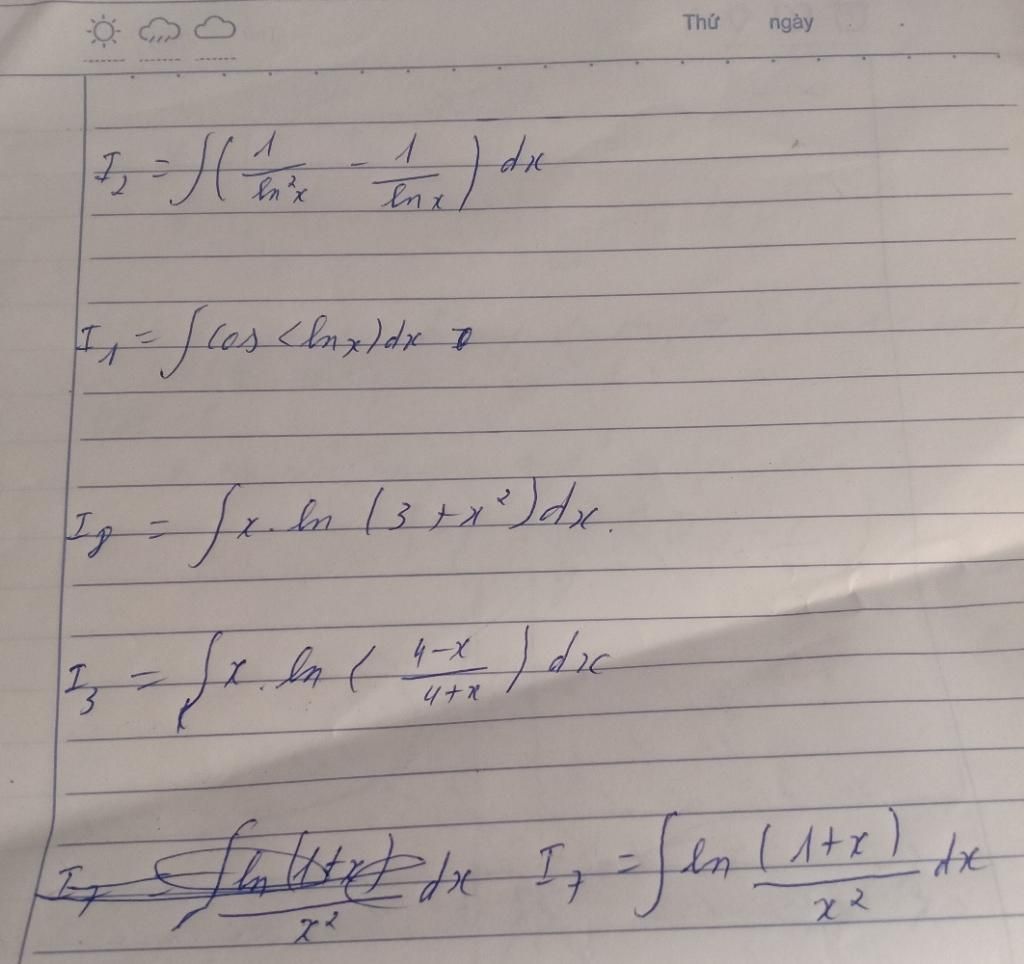 Thứ ngày
I₂ = ∫(1/ln²x - 1/lnx) dx
I₁ = ∫ cos (lnx) dx
I₈ = ∫ x. ln (3 + x²) dx.
I₃ = ∫ x. ln (4-x/4+x) dx
I₇ = ∫ ln(1+x)/x² dx I₇ = ∫ ln (1+x)/x² dx